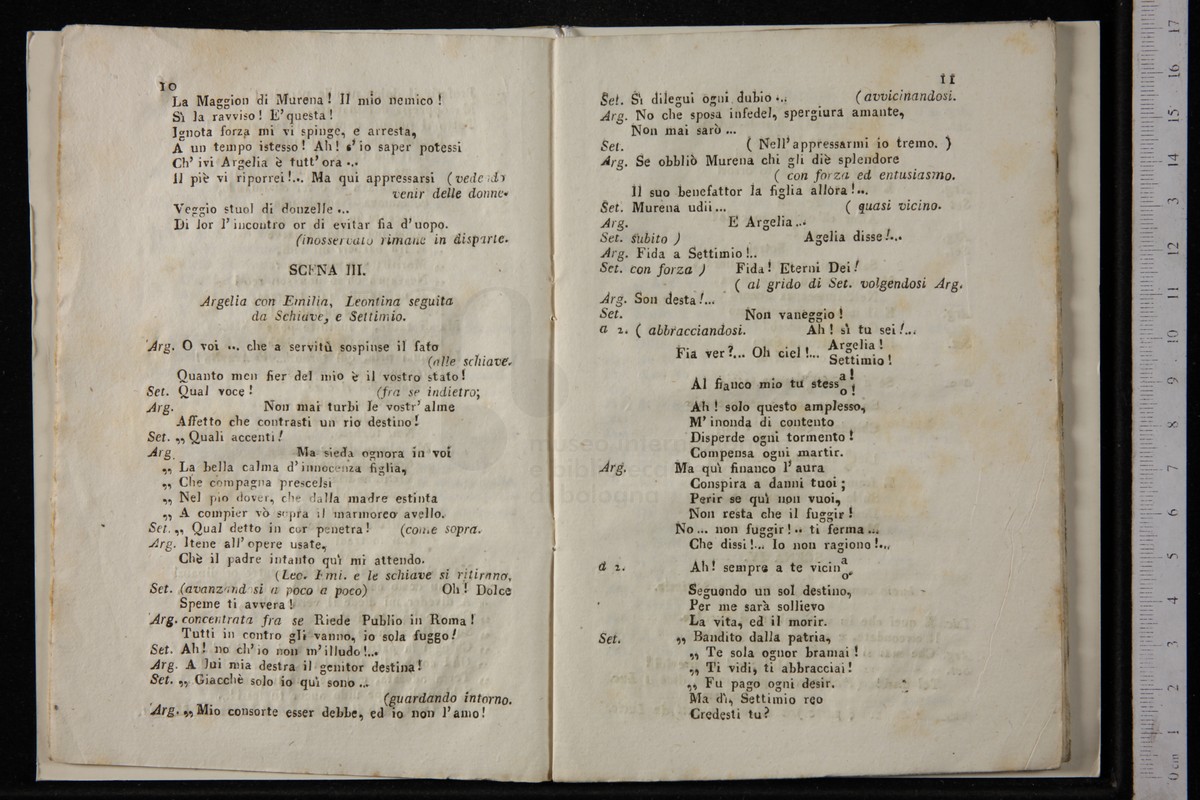 10
La Maggion di Murena! Il mio nemico!
Sì la ravviso! E' questa!
Ignota forza mi vi spinge, e arresta,
A un tempo istesso! Ah! s'io saper potessi
Ch' ivi Argelia è tutt' ora ...
Il piè vi riporrei!... Ma qui appressarsi (vede di
venir delle donne.
Veggio stuol di donzelle ...
Di lor l' incontro or di evitar fia d'uopo.
(inosservato rimane in disparte.
SCENA III.
Argelia con Emilia, Leontina seguita
da Schiave, e Settimio.
Arg. O voi ... che a servitù sospinse il fato
(alle schiave.
Quanto men fier del mio è il vostro stato!
Set. Qual voce! (fra se indietro;
Arg. Non mai turbi le vostr' alme
Affetto che contrasti un rio destino!
Set. „ Quali accenti!
Arg. Ma sieda ognora in voi
„ La bella calma d' innocenza figlia,
„ Che compagna prescelsi
„ Nel pio dover, che dalla madre estinta
„ A compier vò sopra il marmoreo avello.
Set. „ Qual detto in cor penetra! (come sopra.
Arg. Itene all' opere usate,
Chè il padre intanto quì mi attendo.
(Leo. Emi. e le schiave si ritirano,
Set. (avanzand si a poco a poco) Oh! Dolce
Speme ti avvera!
Arg. concentrata fra se Riede Publio in Roma!
Tutti in contro gli vanno, io sola fuggo!
Set. Ah! no ch' io non m' illudo!...
Arg. A lui mia destra il genitor destina!
Set. „ Giacchè solo io quì sono ...
(guardando intorno.
Arg. „ Mio consorte esser debbe, ed io non l'amo!
11
Set. Si dilegui ogni dubio ... (avvicinandosi.
Arg. No che sposa infedel, spergiura amante,
Non mai sarò ...
Set. ( Nell' appressarmi io tremo. )
Arg. Se obbliò Murena chi gli diè splendore
( con forza ed entusiasmo.
Il suo benefattor la figlia allora!...
Set. Murena udii ... ( quasi vicino.
Arg. E Argelia...
Set. subito ) Agelia disse!...
Arg. Fida a Settimio!..
Set. con forza ) Fida! Eterni Dei!
( al grido di Set. volgendosi Arg.
Arg. Son desta!...
Set. Non vaneggio!
a 2. ( abbracciandosi. Ah! sì tu sei!...
Fia ver?... Oh ciel!... Argelia!
Settimio!
Al fianco mio tu stess a!
o!
Ah! solo questo amplesso,
M' inonda di contento
Disperde ogni tormento!
Compensa ogni martir.
Arg. Ma quì financo l' aura
Conspira a danni tuoi;
Perir se quì non vuoi,
Non resta che il fuggir!
No ... non fuggir! .. ti ferma ...
Che dissi!... Io non ragiono!...
a 2. Ah! sempre a te vicin a
o,
Seguendo un sol destino,
Per me sarà sollievo
La vita, ed il morir.
Set. „ Bandito dalla patria,
„ Te sola ognor bramai!
„ Ti vidi, ti abbracciai!
„ Fu pago ogni desir.
Ma dì, Settimio reo
Credesti tu?